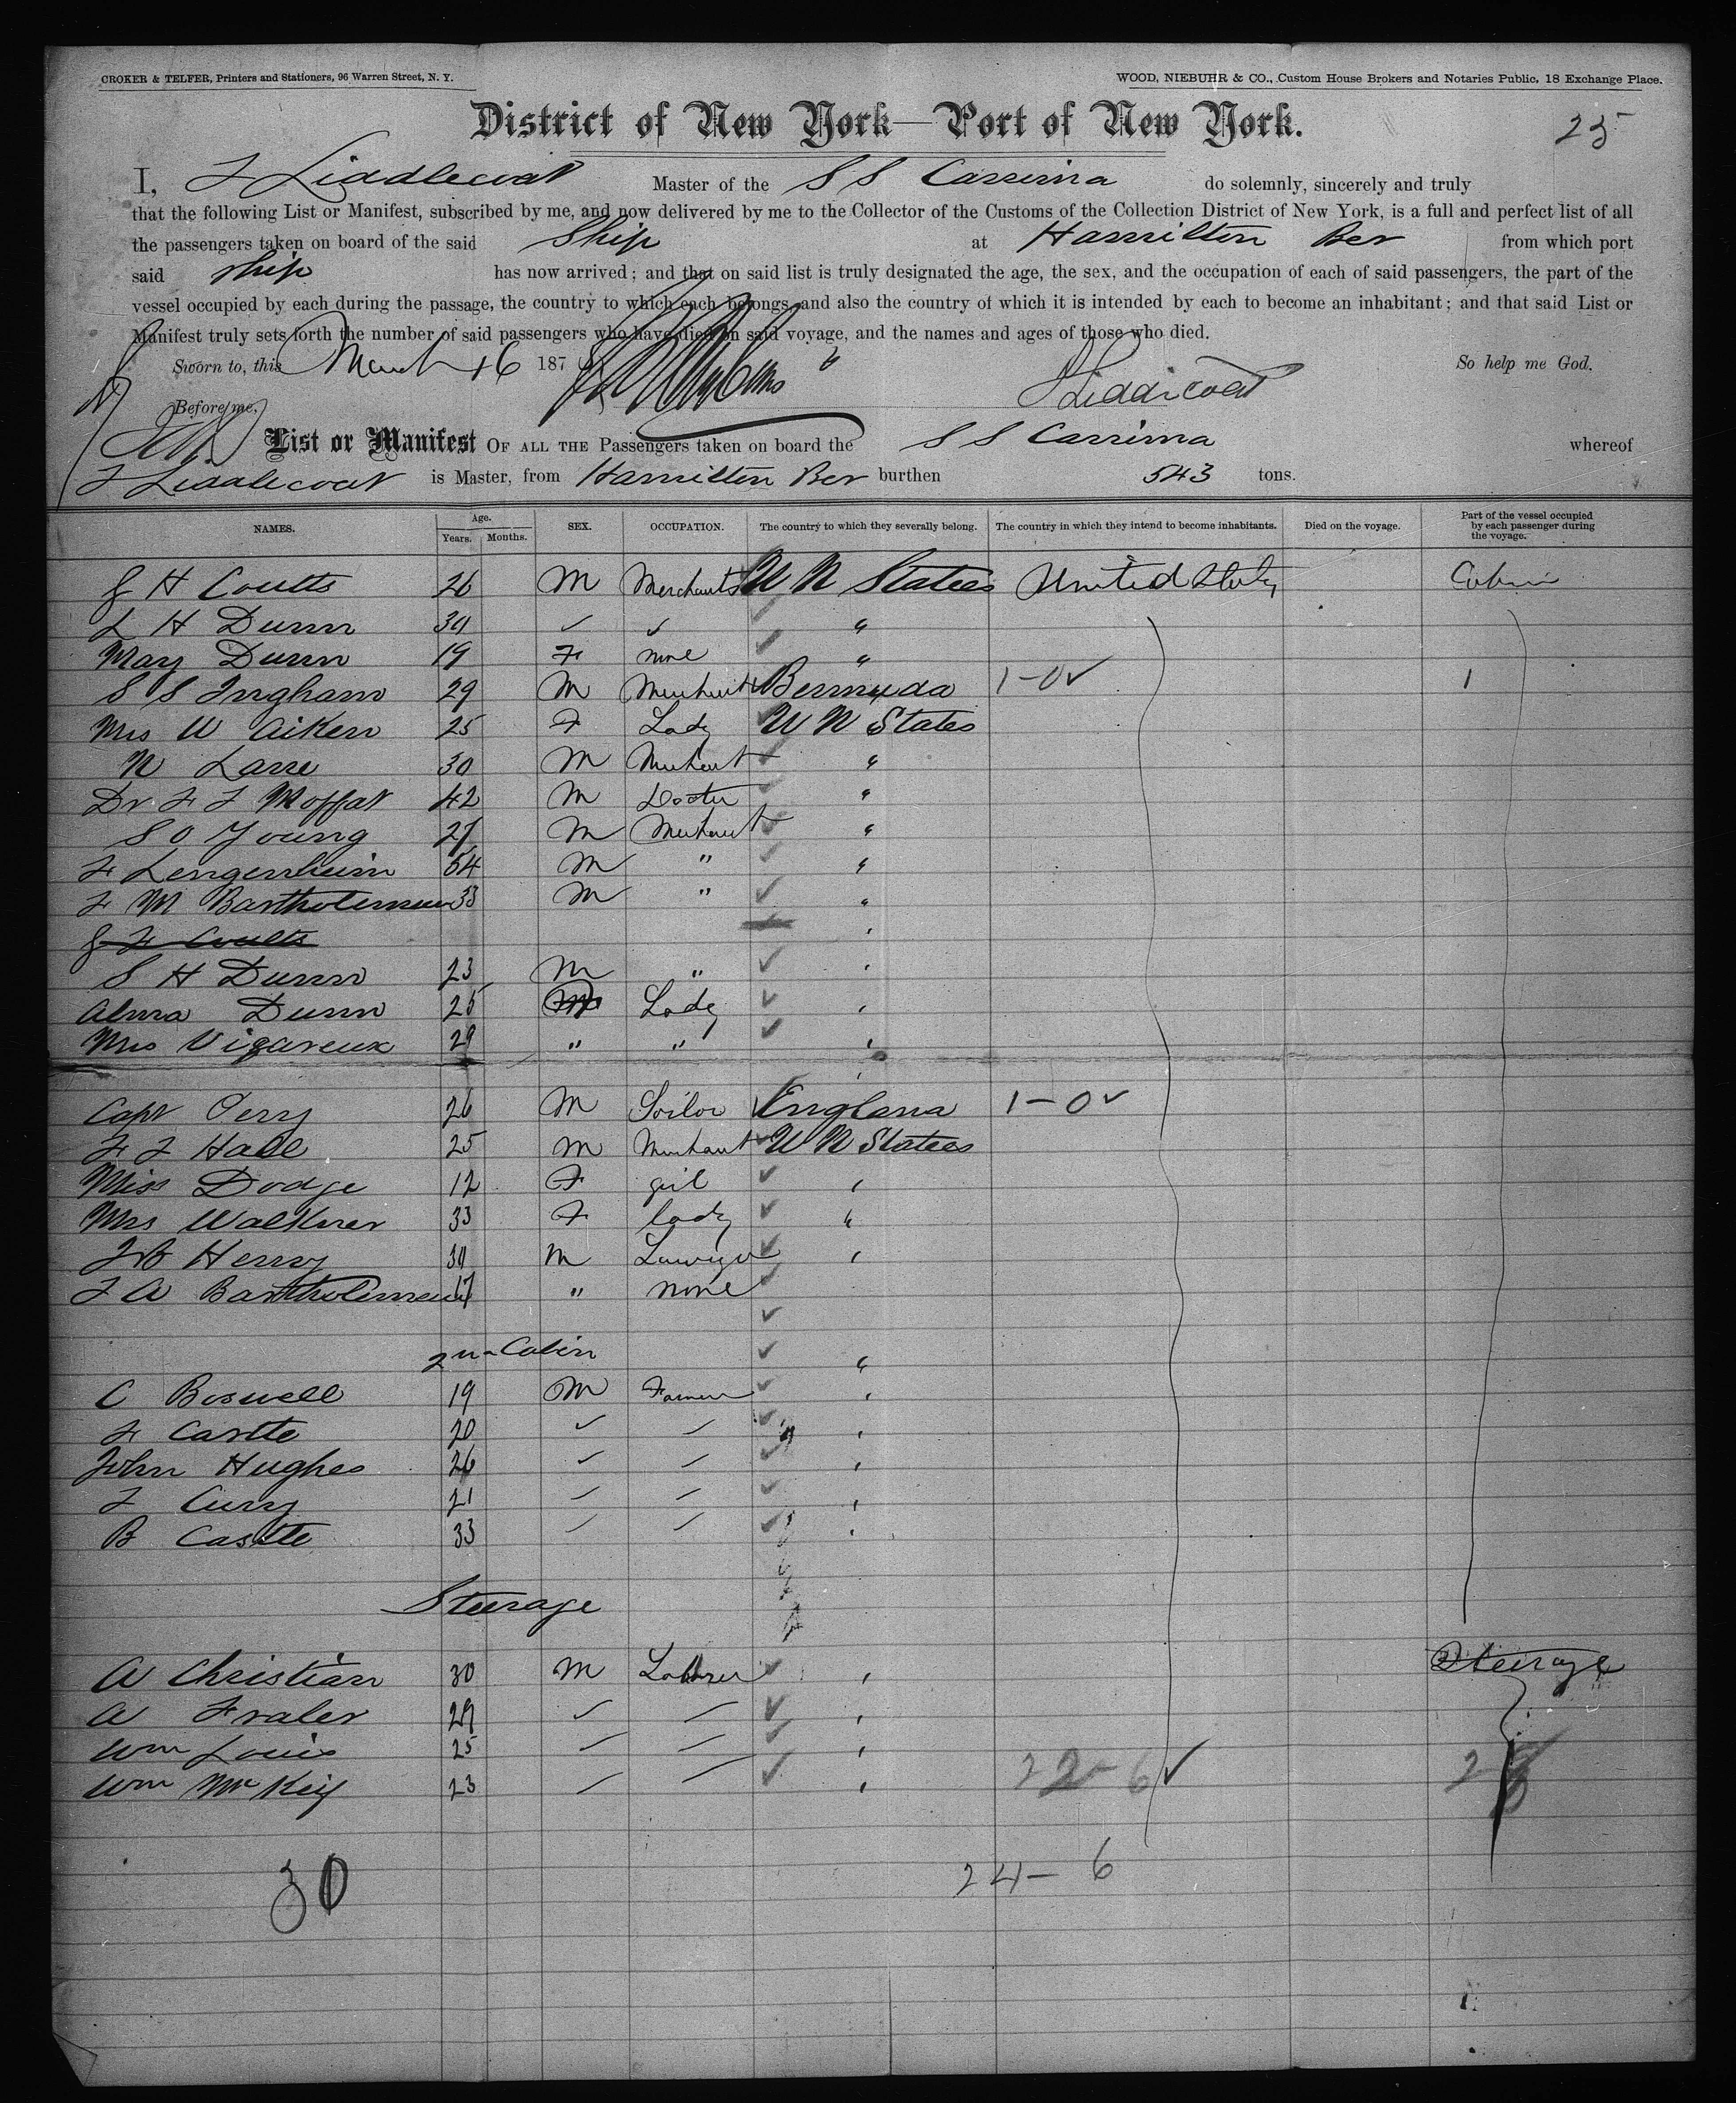 CROKER & TELFER, Printers and Stationers, 96 Warren Street, N. Y.
WOOD, NIEBUHR & CO., Custom House Brokers and Notaries Public, 18 Exchange Place.
District of New York—Port of New York.
25
I, Liddlecoat Master of the S S Carrima do solemnly, sincerely and truly
that the following List or Manifest, subscribed by me, and now delivered by me to the Collector of the Customs of the Collection District of New York, is a full and perfect list of all
the passengers taken on board of the said Ship at Hamilton Ber from which port
said ship has now arrived; and that on said list is truly designated the age, the sex, and the occupation of each of said passengers, the part of the
vessel occupied by each during the passage, the country to which each belongs, and also the country of which it is intended by each to become an inhabitant; and that said List or
Manifest truly sets forth the number of said passengers who have died on said voyage, and the names and ages of those who died.
Sworn to, this March 16 187 So help me God.
Before me, Liddicoat
List or Manifest OF ALL THE Passengers taken on board the S S Carrima whereof
Liddlecoat is Master, from Hamilton Ber burthen 543 tons.
NAMES. Age. Years. Months. SEX. OCCUPATION. The country to which they severally belong. The country in which they intend to become inhabitants. Died on the voyage. Part of the vessel occupied by each passenger during the voyage.
J H Coults 26 M Merchant U N States United States Cabin
L H Dunn 30 ✓ ✓ "
May Dunn 19 F none "
S S Ingham 29 M Merchant Bermuda 1-0✓ 1
Mrs W Aiken 25 F Lady U N States
N Larre 30 M Merchant "
Dr F J Moffat 42 M Doctor "
S O Young 27 M Merchant "
F Lengenheim 54 M " "
F M Bartholemew 33 M " "
J F Coults "
S H Dunn 23 M " "
Alma Dunn 25 Lady "
Mrs Vigareux 29 " " "
Capt Perry 26 M Sailor England 1-0✓
F J Hall 25 M Merchant U N States
Miss Dodge 12 F girl "
Mrs Walkner 33 F lady "
Henry 30 M Lawyer "
J A Bartholemew 17 " none
2nd Cabin "
C Boswell 19 M Farmer "
F Castle 20 "
John Hughes 26 "
J Curry 21 "
B Castle 33 "
Steerage
A Christian 30 M Laborer " Steerage
A Fraler 29 "
Wm Louis 25 "
Wm McKey 23 " 22-6✓
30 24-6